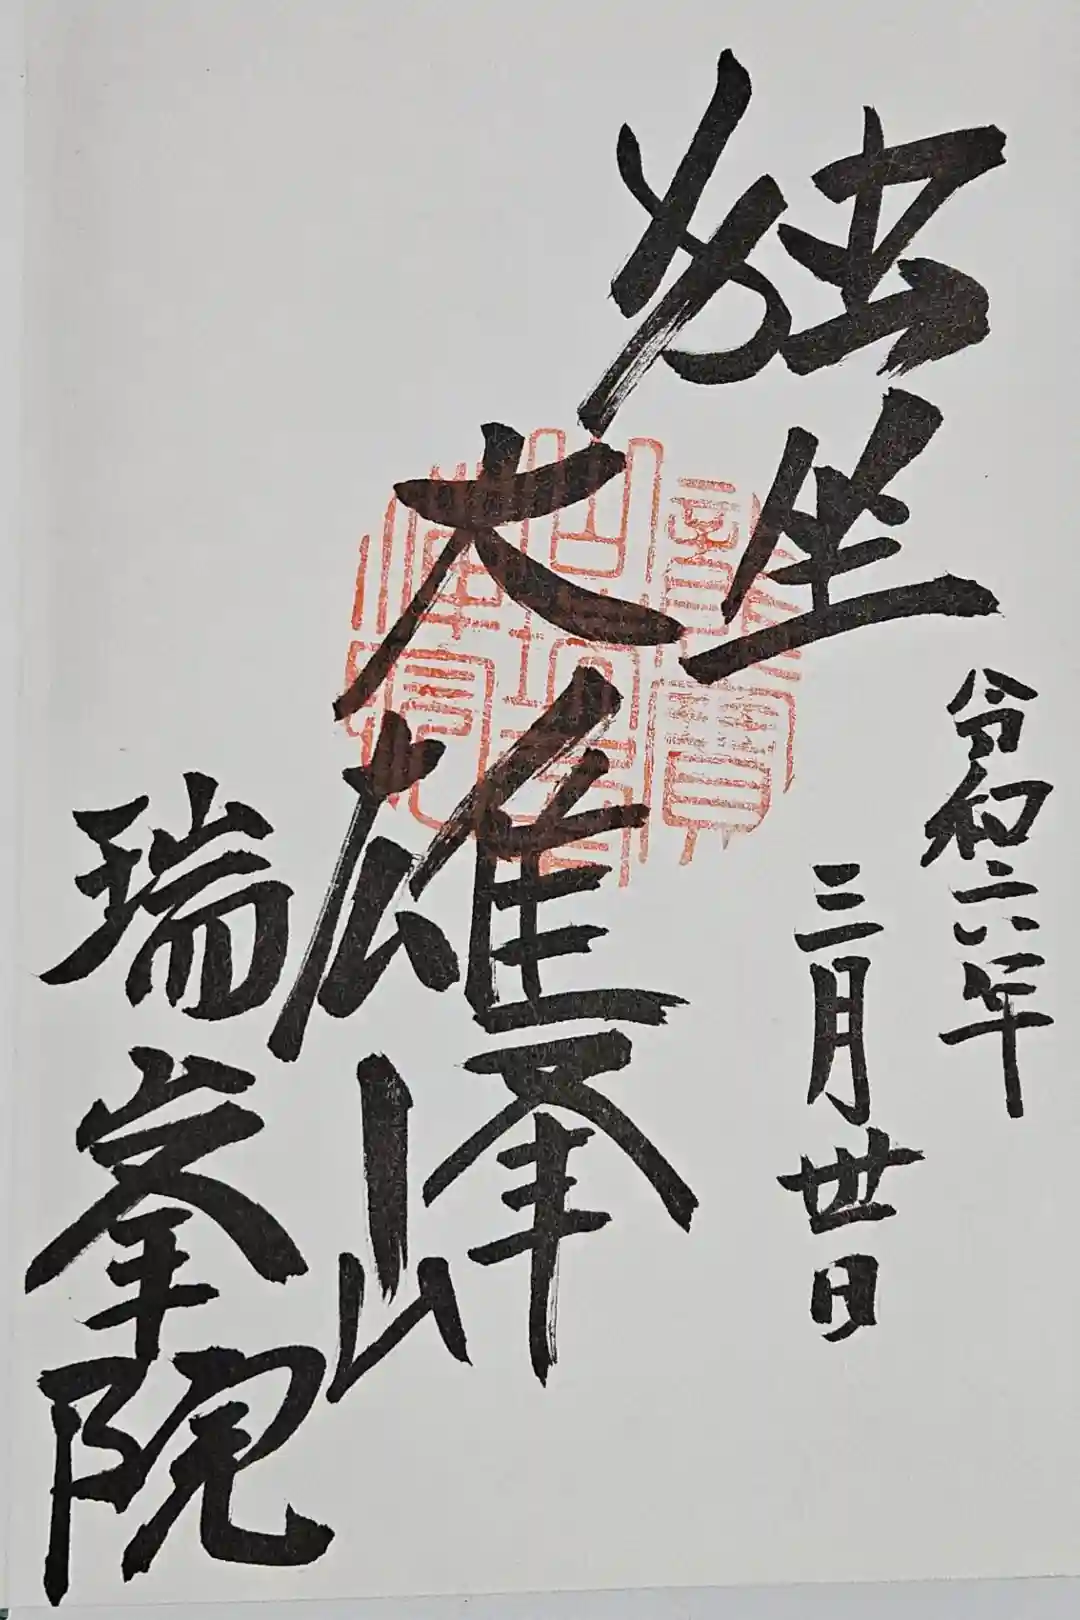 独坐
令和六年
三月丗日
大雄峰
瑞峯院